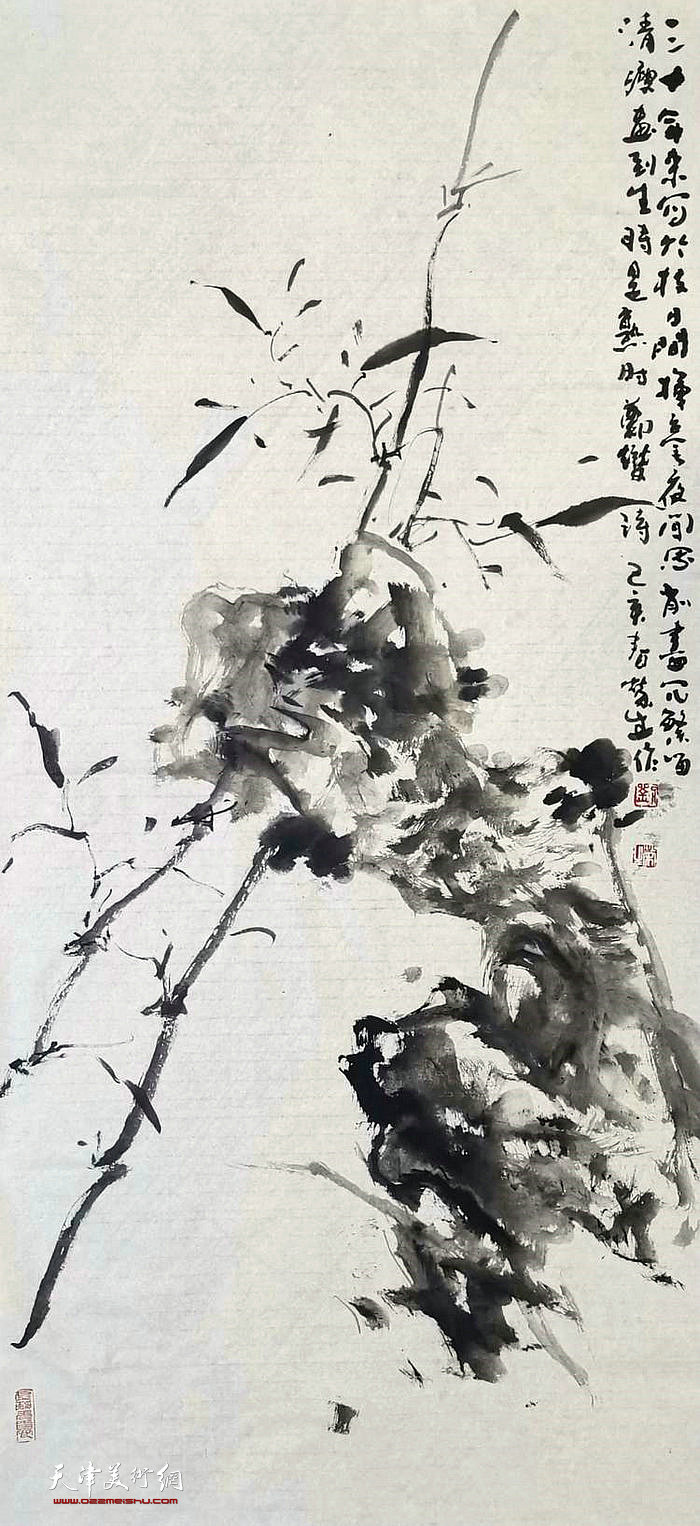 三十年来写竹枝日间挥毫夜间思削尽冗繁留
清瘦画到生时是熟时郑燮诗己亥春作
天津美術網
www.022meishu.com